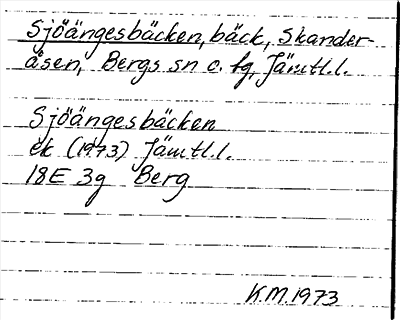 Sjöängesbäcken, bäck, Skander-
åsen, Bergs sn o. tg, Jämtl.l.
Sjöängesbäcken
ek (1973) Jämtl.l.
18E 3g Berg
K.M. 1973